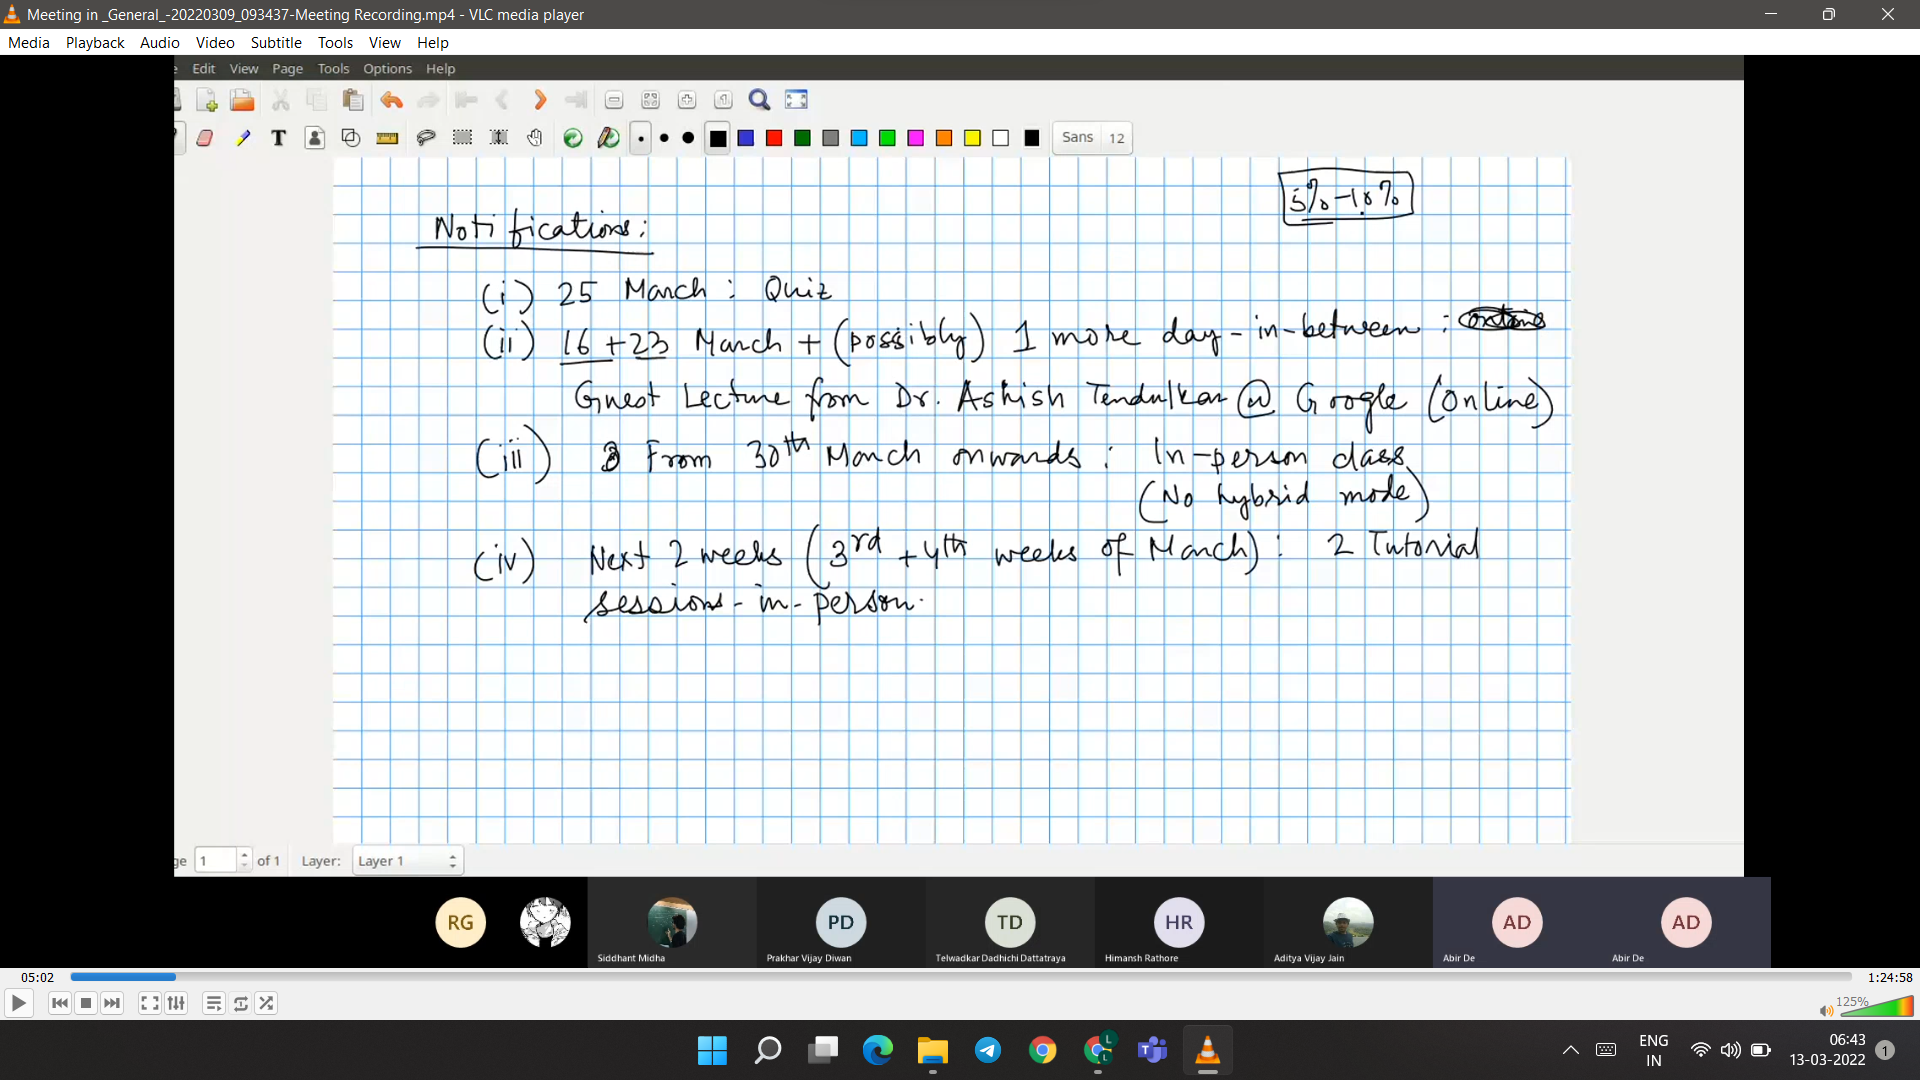 Meeting in _General_-20220309_093437-Meeting Recording.mp4 - VLC media player
Media Playback Audio Video Subtitle Tools View Help
Edit View Page Tools Options Help
Sans 12
5% - 10%
Notifications:
(i) 25 March : Quiz
(ii) 16 + 23 March + (possibly) 1 more day - in - between :
Guest Lecture from Dr. Ashish Tendulkar @ Google (Online)
(iii) From 30th March onwards : In-person class
(No hybrid mode)
(iv) Next 2 weeks (3rd + 4th weeks of March) : 2 Tutorial
sessions - in - person.
ge 1 of 1 Layer: Layer 1
RG PD TD HR AD AD
Siddhant Midha Prakhar Vijay Diwan Telwadkar Dadhichi Dattatraya Himansh Rathore Aditya Vijay Jain Abir De Abir De
05:02 1:24:58
125%
ENG 06:43
IN 13-03-2022 1